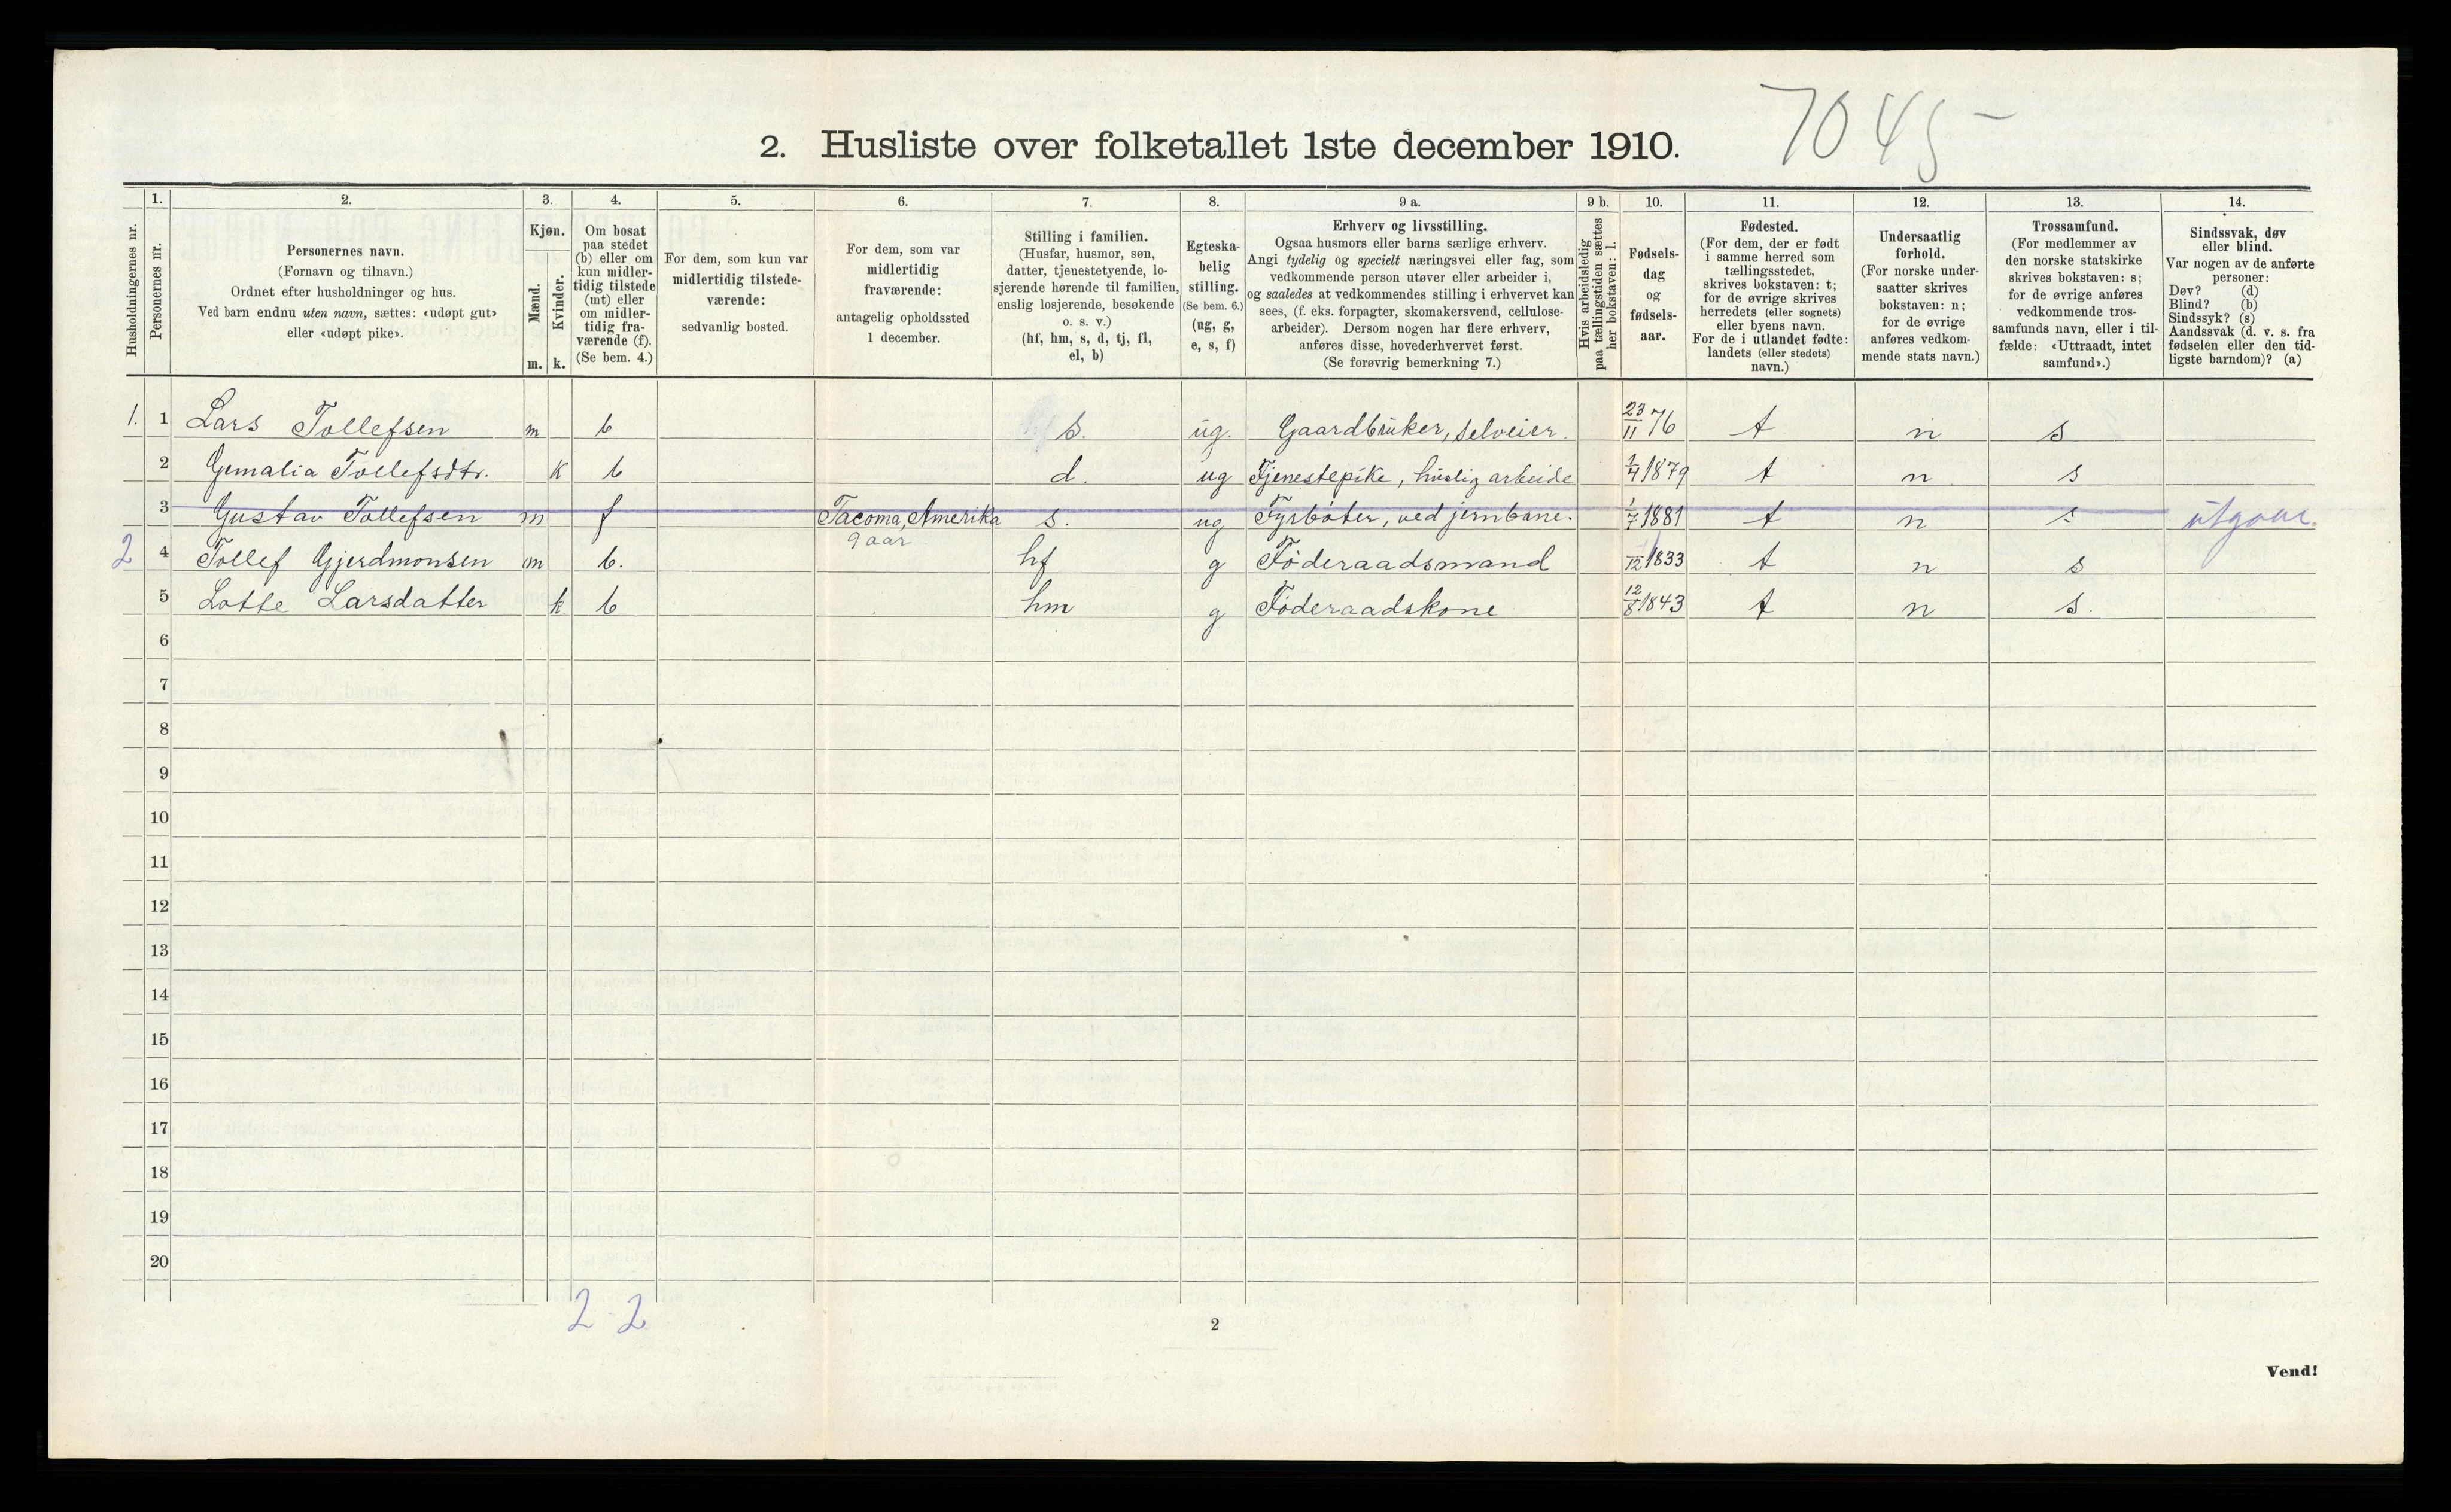 7045-
2. Husliste over folketallet 1ste december 1910.
Husholdningernes nr.
1. Personernes nr.
2. Personernes navn.
(Fornavn og tilnavn.)
Ordnet efter husholdninger og hus.
Ved barn endnu uten navn, sættes: «udøpt gut»
eller «udøpt pike».
3. Kjøn.
Mænd. m.
Kvinder. k.
4. Om bosat
paa stedet
(b) eller om
kun midler-
tidig tilstede
(mt) eller
om midler-
tidig fra-
værende (f).
(Se bem. 4.)
5. For dem, som kun var
midlertidig tilstede-
værende:
sedvanlig bosted.
6. For dem, som var
midlertidig
fraværende:
antagelig opholdssted
1 december.
7. Stilling i familien.
(Husfar, husmor, søn,
datter, tjenestetyende, lo-
sjerende hørende til familien,
enslig losjerende, besøkende
o. s. v.)
(hf, hm, s, d, tj, fl,
el, b)
8. Egteska-
belig
stilling.
(Se bem. 6.)
(ug, g,
e, s, f)
9 a. Erhverv og livsstilling.
Ogsaa husmors eller barns særlige erhverv.
Angi tydelig og specielt næringsvei eller fag, som
vedkommende person utøver eller arbeider i,
og saaledes at vedkommendes stilling i erhvervet kan
sees, (f. eks. forpagter, skomakersvend, cellulose-
arbeider). Dersom nogen har flere erhverv,
anføres disse, hovederhvervet først.
(Se forøvrig bemerkning 7.)
9 b. Hvis arbeidsledig
paa tællingstiden sættes
her bokstaven: l.
10. Fødsels-
dag
og
fødsels-
aar.
11. Fødested.
(For dem, der er født
i samme herred som
tællingsstedet,
skrives bokstaven: t;
for de øvrige skrives
herredets (eller sognets)
eller byens navn.
For de i utlandet fødte:
landets (eller stedets)
navn.)
12. Undersaatlig
forhold.
(For norske under-
saatter skrives
bokstaven: n;
for de øvrige
anføres vedkom-
mende stats navn.)
13. Trossamfund.
(For medlemmer av
den norske statskirke
skrives bokstaven: s;
for de øvrige anføres
vedkommende tros-
samfunds navn, eller i til-
fælde: «Uttraadt, intet
samfund».)
14. Sindssvak, døv
eller blind.
Var nogen av de anførte
personer:
Døv? (d)
Blind? (b)
Sindssyk? (s)
Aandssvak (d. v. s. fra
fødselen eller den tid-
ligste barndom)? (a)
1. 1 Lars Tollefsen m b s. ug. Gaardbruker, selveier. 23/11 76 t n s
2 Gemalia Tollefsdtr. k b d. ug Tjenestepike, huslig arbeide 1/4 1879 t n s
3 Gustav Tollefsen m f Tacoma, Amerika s. ug Fyrbøter, ved jernbane. 1/7 1881 t n s utgaar.
9 aar
2 4 Tollef Gjerdmonsen m b. hf g Føderaadsmand /12 1833 t n s
5 Lotte Larsdatter k b hm g Føderaadskone 12/8 1843 t n s.
6
7
8
9
10
11
12
13
14
15
16
17
18
19
20
2-2
2
Vend!